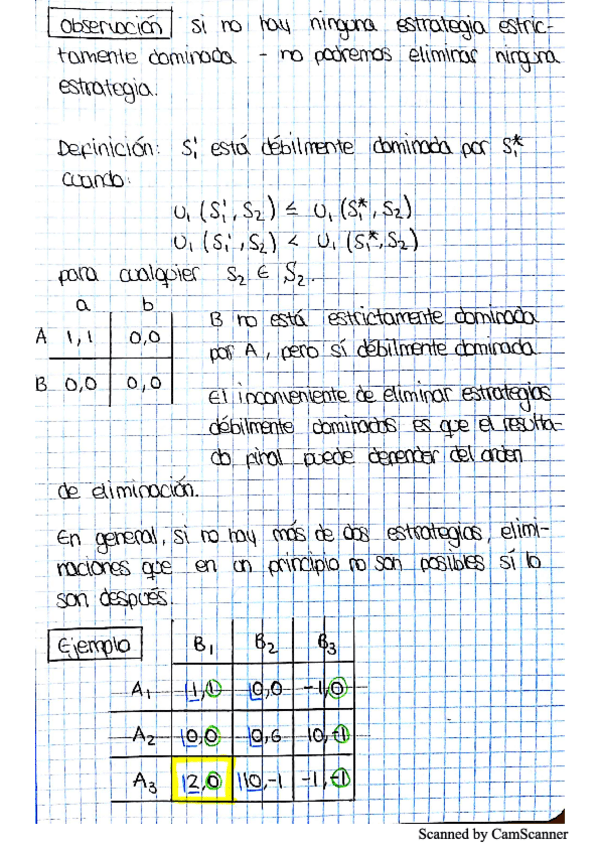 Observación si no hay ninguna estrategia estric-
tamente dominada - no podremos eliminar ninguna
estrategia.
Definición: S₁' está débilmente dominada por S₁*
cuando:
U₁ (S₁', S₂) ≤ U₁ (S₁*, S₂)
U₁ (S₁', S₂) < U₁ (S₁*, S₂)
para cualquier S₂ ∈ S₂.
a b
A 1,1 0,0
B 0,0 0,0
B no está estrictamente dominada
por A, pero sí débilmente dominada.
El inconveniente de eliminar estrategias
débilmente dominadas es que el resulta-
do final puede depender del orden
de eliminación.
En general, si no hay más de dos estrategias, elimi-
naciones que en un principio no son posibles sí lo
son después.
Ejemplo B₁ B₂ B₃
A₁ 1,1 0,0 -1,0
A₂ 0,0 0,6 10,-1
A₃ 2,0 10,-1 -1,-1
Scanned by CamScanner